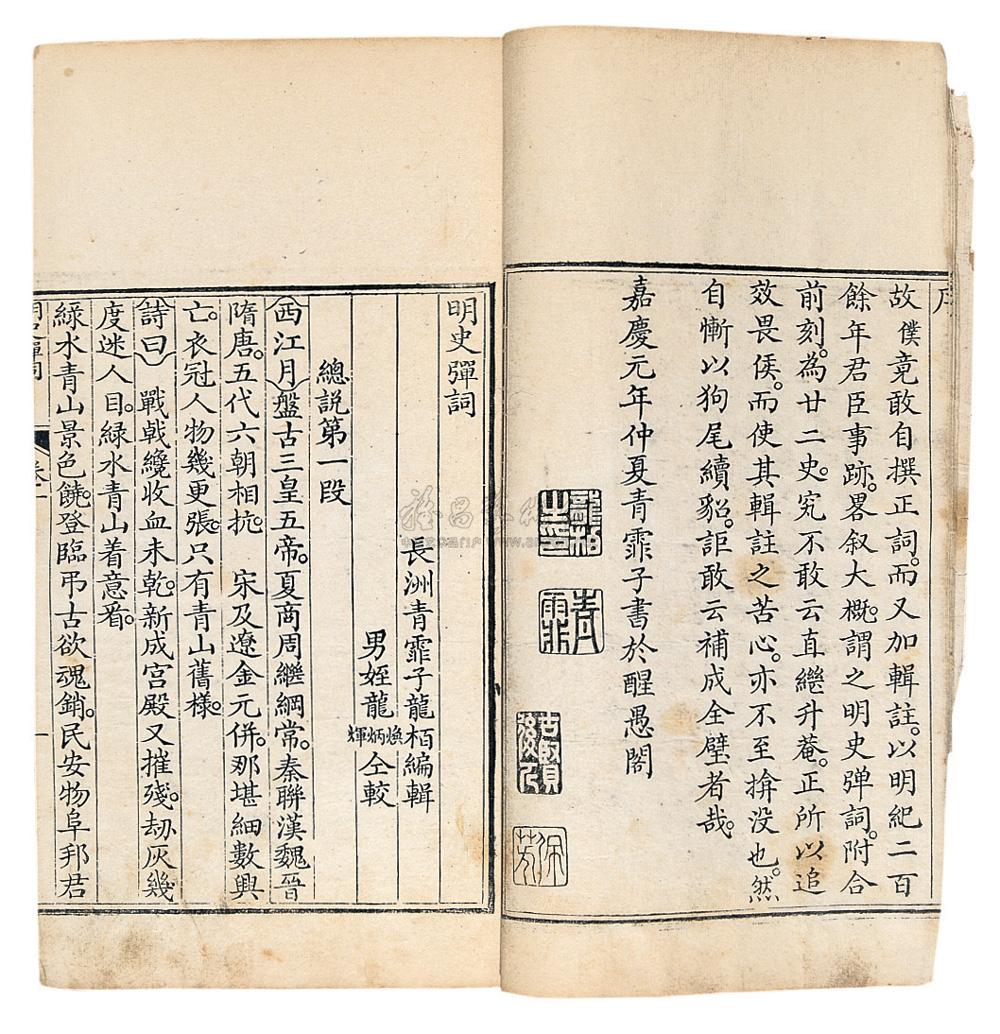 序
故僕竟敢自撰正詞。而又加輯註。以明紀二百
餘年君臣事跡。畧叙大概。謂之明史弹詞。附合
前刻。為廿二史。究不敢云直繼升菴。正所以追
效畏俟。而使其輯註之苦心。亦不至揜没也。然
自慚以狗尾續貂。詎敢云補成全璧者哉。
嘉慶元年仲夏青霏子書於醒愚閣
龍柏之印
青霏
明史彈詞
長洲青霏子龍柏編輯
男姪龍煥炳輝仝較
總説第一段
西江月）盤古三皇五帝。夏商周繼綱常。秦聯漢魏晉
隋唐。五代六朝相抗。　宋及遼金元併。那堪細數興
亡。衣冠人物幾更張。只有青山舊樣。
詩曰）　戰戟纔收血未乾。新成宫殿又摧殘。劫灰幾
度迷人目。緑水青山着意看。
緑水青山景色饒。登臨弔古欲魂銷。民安物阜邦君
卷一
一